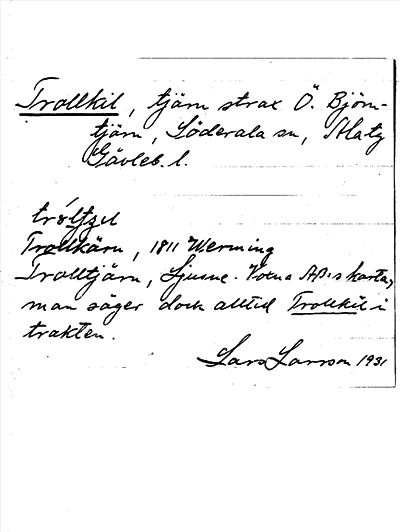 Trollkil, tjärn strax Ö. Björn-
tjärn, Söderala sn,
Gävleb. l.
Trollkärn, 1811 Werming
Trolltjärn, Ljusne-Voxna AB:s karta,
man säger dock alltid Trollkil i
trakten.
Lars Larsson 1931